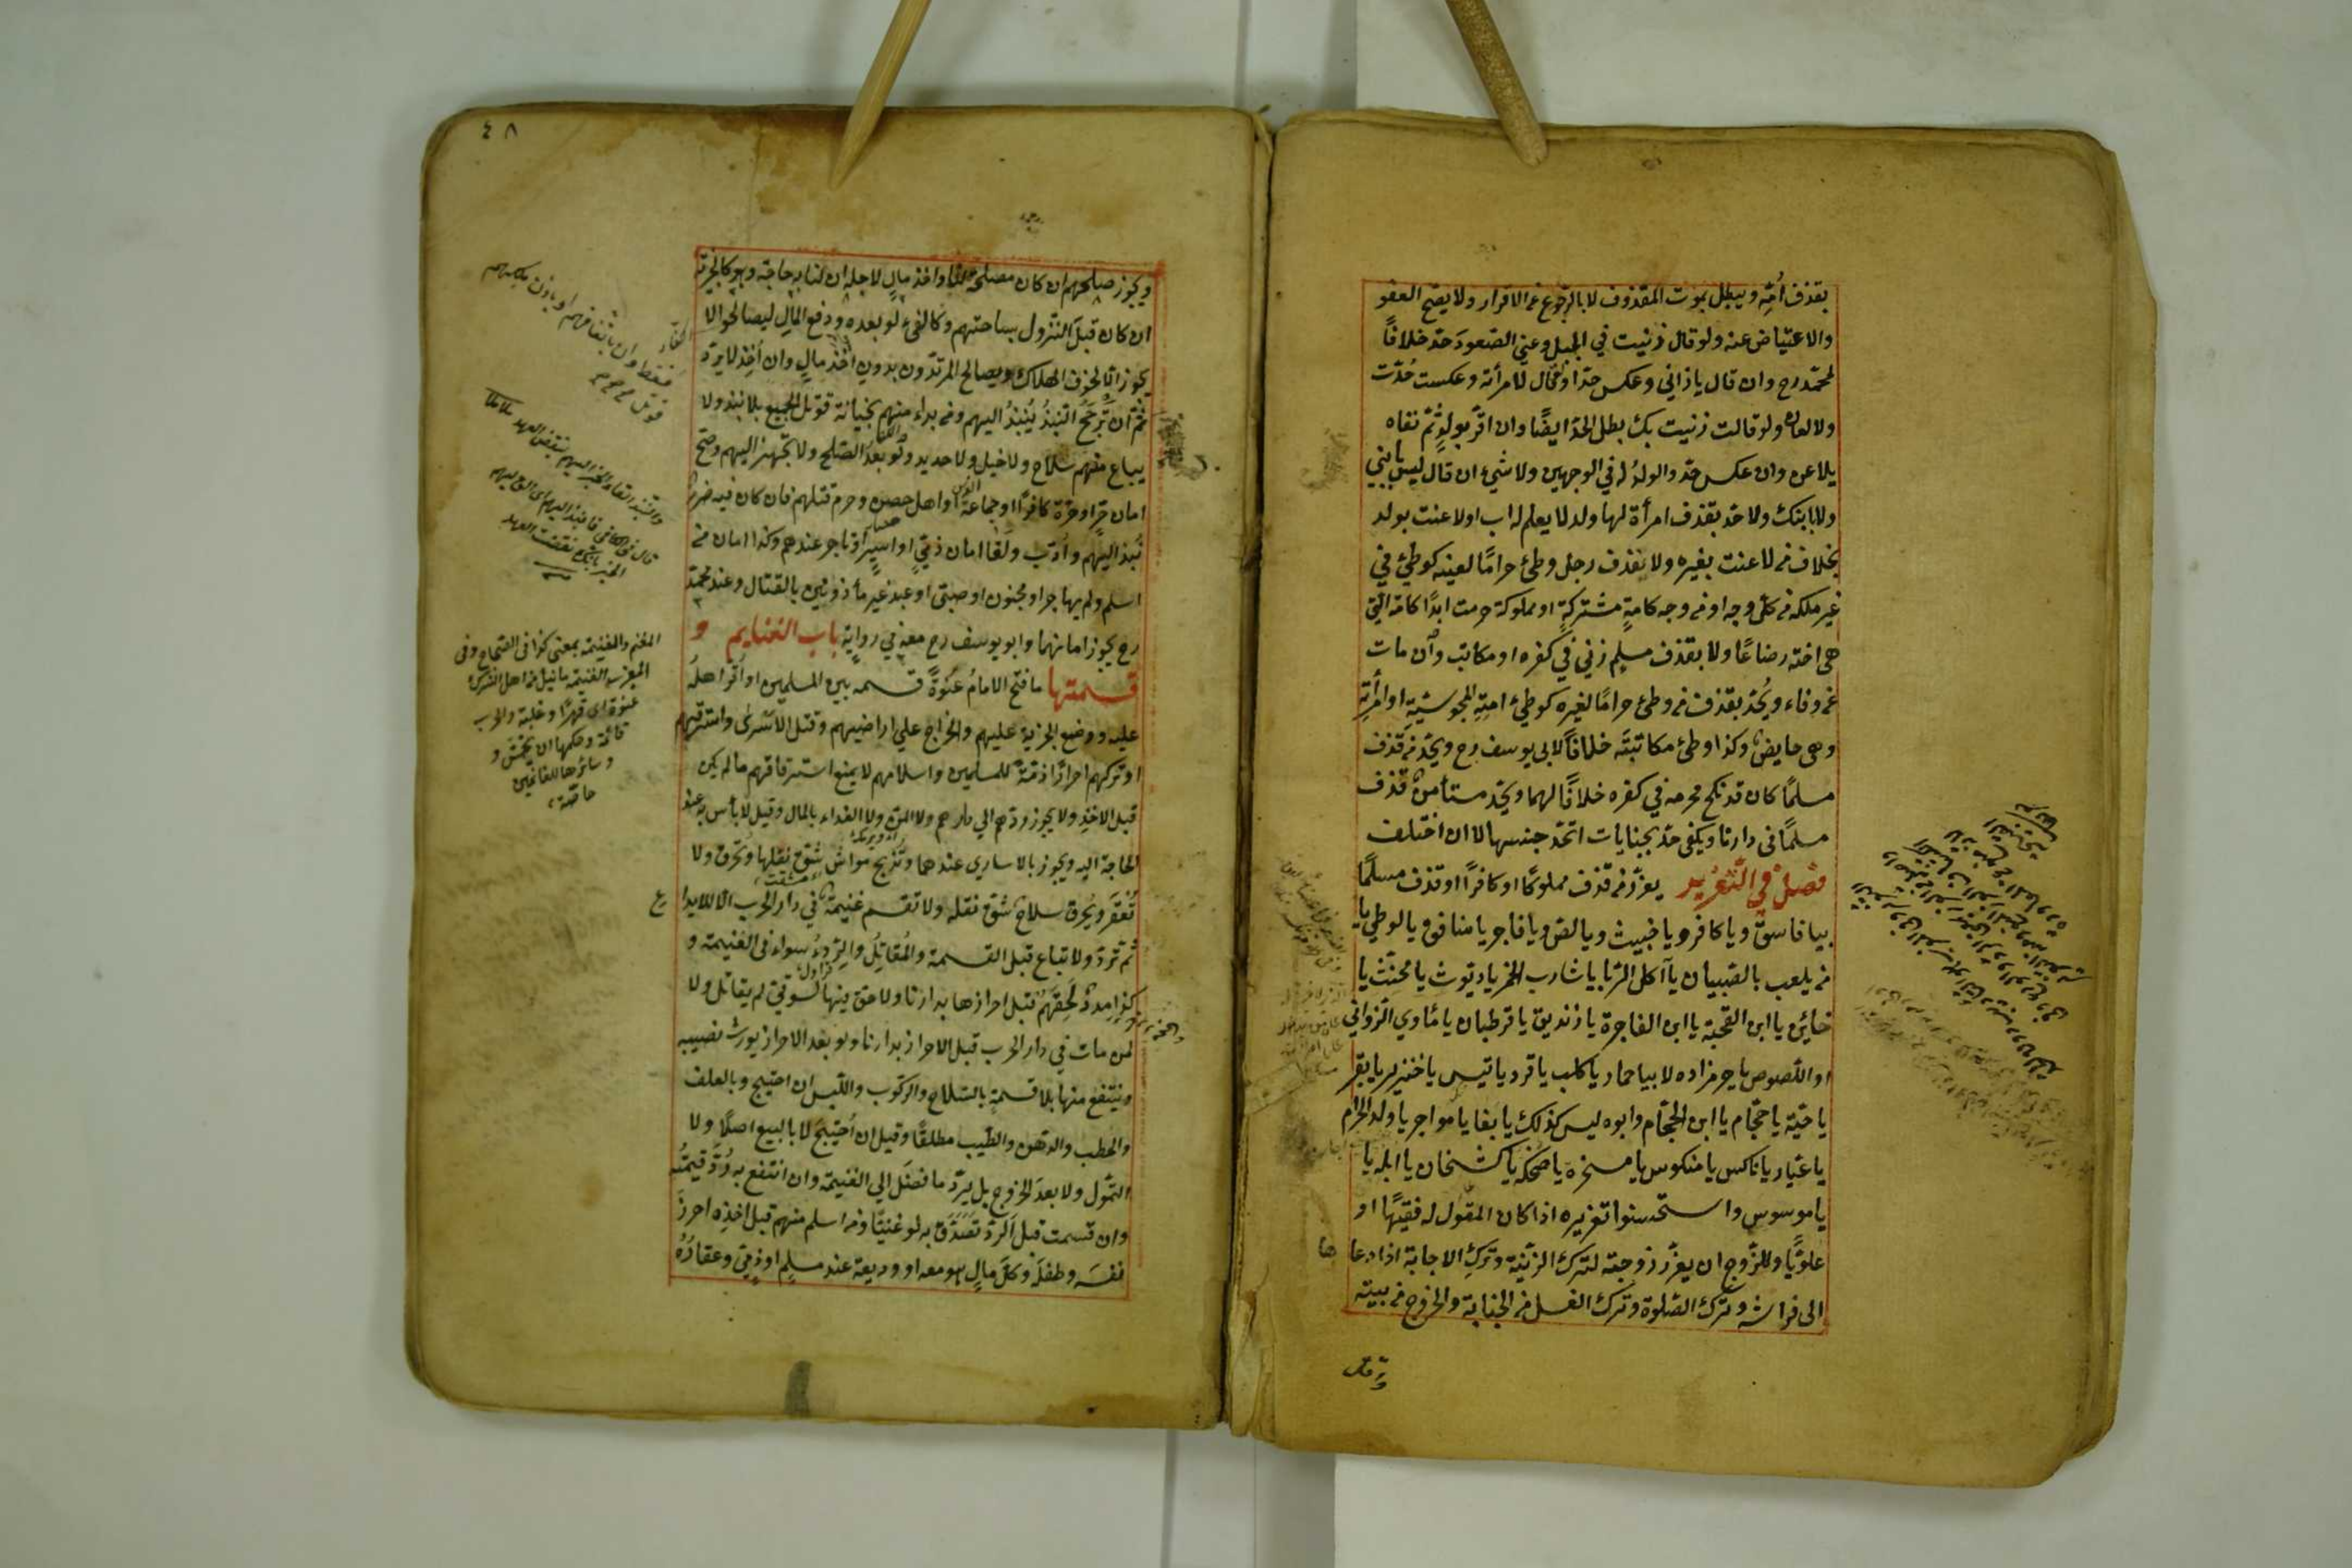 بقذف أمّه ويبطل بموت المقذوف لا بالرجوع عن الاقرار ولا يصح العفو
والاعتياض عنه ولو قال زنيت في الجبل وعنى الصعود حدّ خلافاً
لمحمّد رح وان قال يا زاني وعكس حدّا ولو قال لامرأته وعكست حُدّت
ولا لعان ولو قالت زنيت بك بطل الحدّ ايضًا وان اقرّ بولدٍ ثمّ نفاه
يلاعن وان عكس حدّ والولدُ له في الوجهين ولا شيء ان قال ليس بابني
ولا بابنك ولا حدّ بقذف امرأة لها ولد لا يعلم له اب او لاعنت بولد
بخلاف من لاعنت بغيره ولا بقذف رجل وطئ حرامًا لعينه كوطئ في
غير ملكه من كلّ وجه او من وجه كامةٍ مشتركةٍ او مملوكة حرمت ابدًا كامة الّتي
هي اخته رضاعًا ولا بقذف مسلمٍ زنى في كفره او مكاتب وان مات
عن وفاء ويُحدّ بقذف من وطئ حرامًا لغيره كوطئ امتهِ المجوسيّةِ او امرأته
وهي حايض وكذا وطئ مكاتبته خلافًا لابي يوسف رح ويحدّ من قذف
مسلمًا كان قد نكح محرمه في كفره خلافًا لهما ويحدّ مستأمنٌ قذف
مسلمًا في دارنا ويكفى حدّ بجنايات اتحد جنسها لا ان اختلف
فصلٌ في التّعزير يعزّر من قذف مملوكًا او كافرًا او قذف مسلمًا
بيا فاسق ويا كافر ويا خبيث ويا لص ويا فاجر يا منافق ويا لوطي يا
من يلعب بالصبيان يا آكل الربا يا شارب الخمر يا ديوث يا مخنّث يا
خائن يا ابن القحبة يا ابن الفاجرة يا زنديق يا قرطبان يا مأوي الزواني
او اللصوص يا حرمزاده لا بيا حمار يا كلب يا قرد يا تيس يا خنزير يا بقر
يا حيّة يا حجّام يا ابن الحجّام وابوه ليس كذلك يا بغا يا مواجر يا ولد الحرام
يا عيّار يا ناكس يا منكوس يا مسخرة يا ضحكة يا كشخان يا ابله يا
يا موسوس واستحسنوا تعزيره اذا كان المقول له فقيهًا او
علويًا وللزّوج ان يعزّر زوجته لترك الزّينة وترك الاجابة اذا دعا
ها
الى فراشه وترك الصّلوة وترك الغسل من الجنابة والخروج من بيته
٤٨
ويجوز صلحهم ان كان مصلحة لنا واخذ مال لاجله ان لنا به حاجة وهو كالجزية
ان كان قبل النّزول بساحتهم وكالفئ لو بعده ودفع المال ليصالحوا لا
يجوز الّا لخوف الهلاك ويصالح المرتدّون بدون اخذ مال وان أخذ لا يردّ
ثمّ ان ترجّح النبذ يُنبذُ اليهم ومن بداء منهم بخيانة قوتل الجميع بلا نبذ ولا
يباع منهم سلاح ولا خيل ولا حديد ولو بعد الصّلح ولا يجهّز اليهم وصحّ
امان حرّ او حرّة كافرًا او جماعة او اهل حصن وحرم قتلهم فان كان فيه ضررٌ
نُبذ اليهم وأدّب ولغا امان ذمّي او اسير او تاجر عندهم وكذا امان من
اسلم ولم يهاجر او مجنون او صبي او عبد غير مأذونين بالقتال وعند محمّد
رح يجوز امانهما وابو يوسف رح معه في رواية باب الغنايم و
قسمتها ما فتح الامامُ عنوةً قسمه بين المسلمين او اقرّ اهلُه
عليه ووضع الجزية عليهم والخراج على اراضيهم وقتل الاسرى واسترقّهم
او تركهم احرارًا ذمّة للمسلمين واسلامهم لا يمنع استرقاقهم ما لم يكن
قبل الاخذ ولا يجوز ردّهم الى دارهم ولا المنّ ولا الفداء بالمال وقيل لا بأس به عند
الحاجة اليه ويجوز بالاسارى عندهما وتذبح مواش شقّ نقلها وتحرق ولا
تعقر ويُحرق سلاح شقّ نقله ولا تقسم غنيمة في دار الحرب الّا للايداع
ثم تردّ ولا تباع قبل القسمة والمُقاتِلُ والرِّدءُ سواء في الغنيمة و
كذا مددٌ لَحِقَهُم قبل احرازها بدارنا ولا حقّ فيها لسوقي لم يقاتل ولا
لمن مات في دار الحرب قبل الاحراز بدارنا ولو بعد الاحراز يورث نصيبه
وينتفع منها بلا قسمةٍ بالسّلاح والركوب واللّبس ان احتيج وبالعلف
والحطب والدّهن والطّيب مطلقًا وقيل ان احتيج لا بالبيع اصلًا ولا
التموّل ولا بعد الخروج بل يردّ ما فضل الى الغنيمة وان انتفع به رُدّ قيمتُه
وان قسمت قبل الردّ تصدّق به لو غنيًّا ومن اسلم منهم قبل اخذه احرز
نفسَه وطفلَه وكلّ مالٍ هو معه او وديعة عند مسلم او ذمّي وعقارُهُ
المغنم والغنيمة بمعنى كذا في الصحاح وفي
المغرب الغنيمة ما نيل من اهل الشرك
عنوة اى قهرًا وغلبة والحرب
قائمة وحكمها ان يخمّس و
وسائرها للغانمين
خاصّة